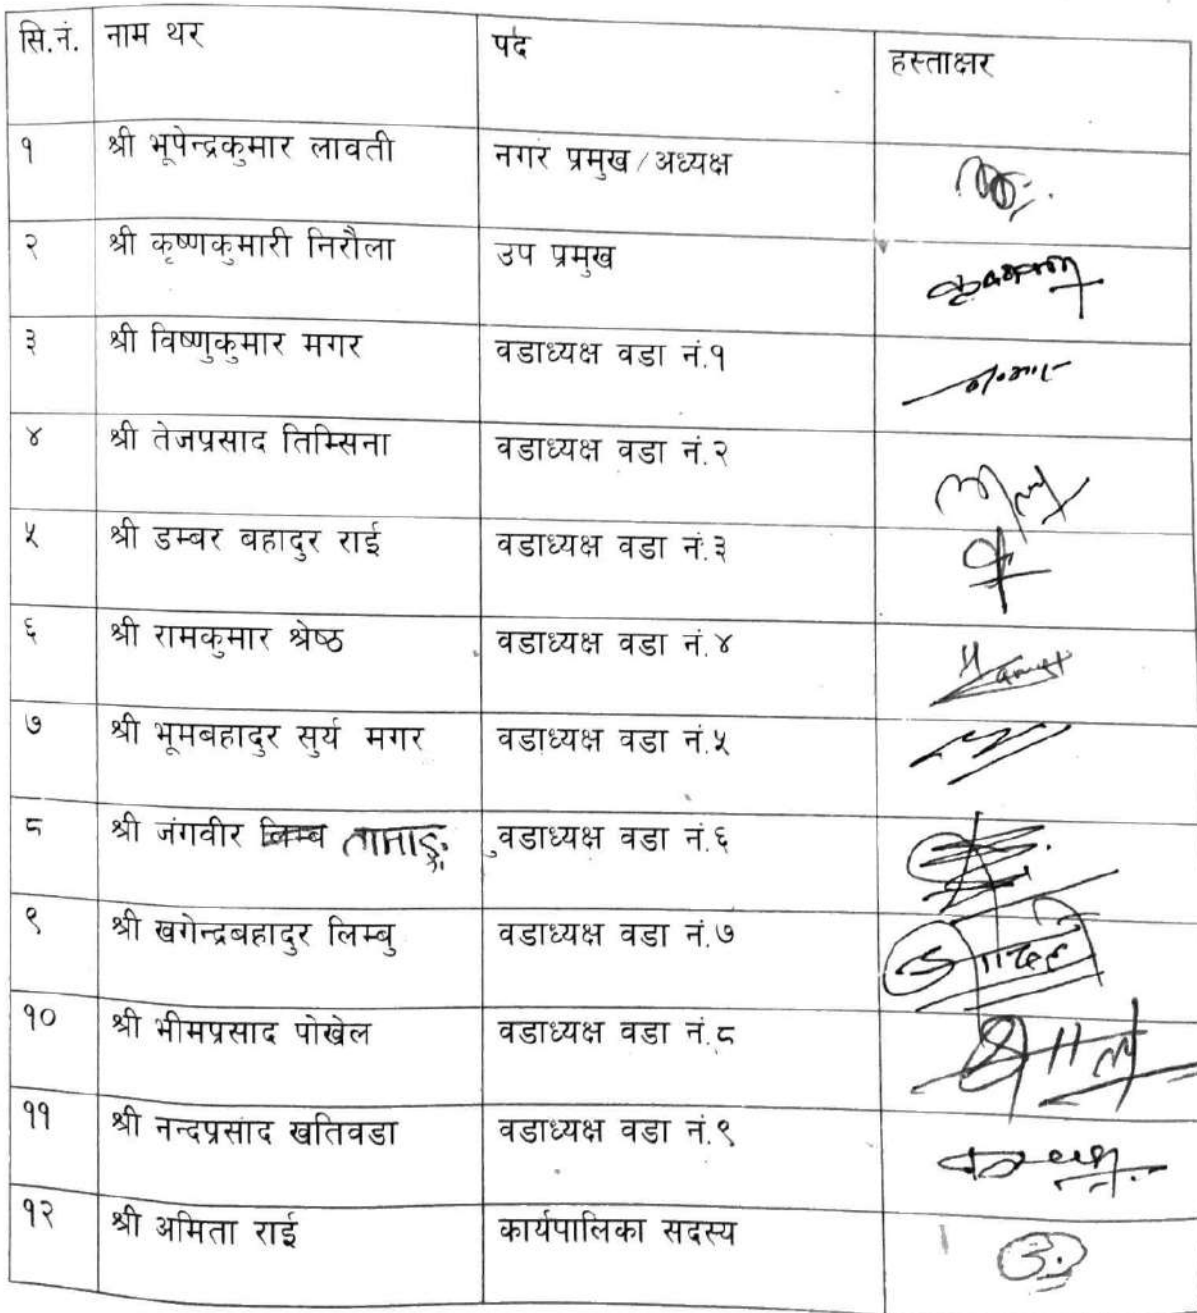 सि.नं. नाम थर पद हस्ताक्षर
१ श्री भूपेन्द्रकुमार लावती नगर प्रमुख/अध्यक्ष
२ श्री कृष्णकुमारी निरौला उप प्रमुख
३ श्री विष्णुकुमार मगर वडाध्यक्ष वडा नं.१
४ श्री तेजप्रसाद तिम्सिना वडाध्यक्ष वडा नं.२
५ श्री डम्बर बहादुर राई वडाध्यक्ष वडा नं.३
६ श्री रामकुमार श्रेष्ठ वडाध्यक्ष वडा नं.४
७ श्री भूमबहादुर सुर्य मगर वडाध्यक्ष वडा नं.५
८ श्री जंगवीर लिम्बु तामाङ वडाध्यक्ष वडा नं.६
९ श्री खगेन्द्रबहादुर लिम्बु वडाध्यक्ष वडा नं.७
१० श्री भीमप्रसाद पोखेल वडाध्यक्ष वडा नं.८
११ श्री नन्दप्रसाद खतिवडा वडाध्यक्ष वडा नं.९
१२ श्री अमिता राई कार्यपालिका सदस्य